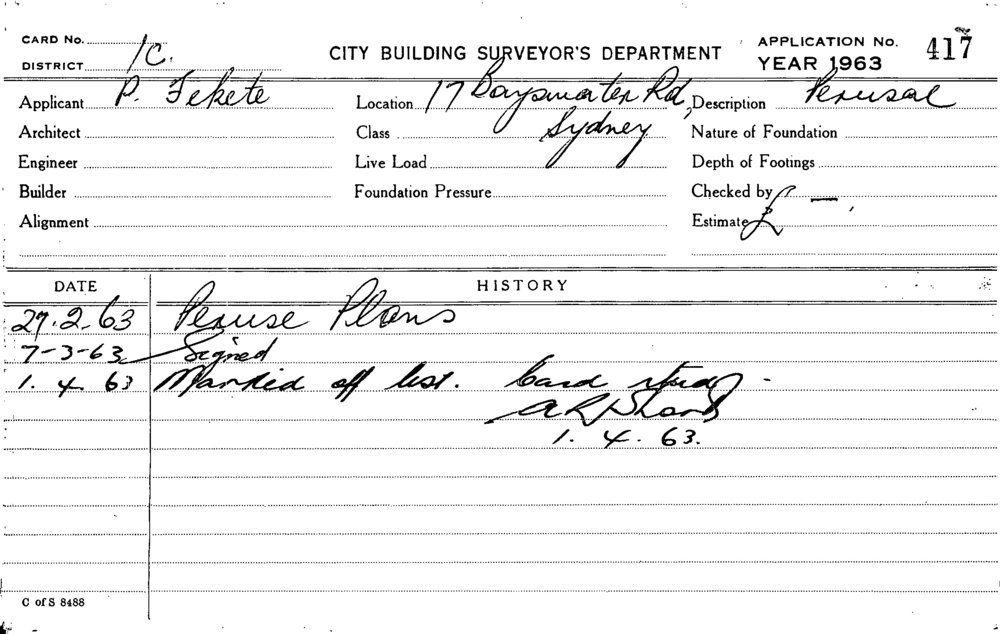 CARD No.
DISTRICT 1C.
CITY BUILDING SURVEYOR'S DEPARTMENT
APPLICATION No. 417
YEAR 1963
Applicant P. Fekete
Location 17 Bayswater Rd,
Sydney
Description Perusal
Architect
Class
Nature of Foundation
Engineer
Live Load
Depth of Footings
Builder
Foundation Pressure
Checked by
Alignment
Estimate £
DATE HISTORY
27.2.63 Peruse Plans
7-3-63 Signed
1. 4. 63 Marked off list. Card
1. 4. 63.
C of S 8488